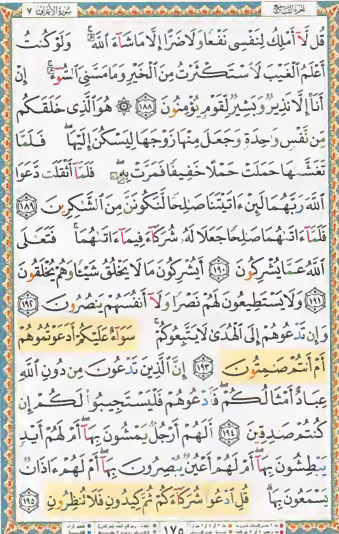 سورة الأعراف ٧
الجزء التاسع
قُل لَّآ أَمْلِكُ لِنَفْسِى نَفْعًا وَلَا ضَرًّا إِلَّا مَا شَآءَ ٱللَّهُ ۚ وَلَوْ كُنتُ
أَعْلَمُ ٱلْغَيْبَ لَٱسْتَكْثَرْتُ مِنَ ٱلْخَيْرِ وَمَا مَسَّنِىَ ٱلسُّوٓءُ ۚ إِنْ
أَنَا۠ إِلَّا نَذِيرٌ وَبَشِيرٌ لِّقَوْمٍ يُؤْمِنُونَ ١٨٨ ۞ هُوَ ٱلَّذِى خَلَقَكُم
مِّن نَّفْسٍ وَٰحِدَةٍ وَجَعَلَ مِنْهَا زَوْجَهَا لِيَسْكُنَ إِلَيْهَا ۖ فَلَمَّا
تَغَشَّىٰهَا حَمَلَتْ حَمْلًا خَفِيفًا فَمَرَّتْ بِهِۦ ۖ فَلَمَّآ أَثْقَلَت دَّعَوَا
ٱللَّهَ رَبَّهُمَا لَئِنْ ءَاتَيْتَنَا صَٰلِحًا لَّنَكُونَنَّ مِنَ ٱلشَّٰكِرِينَ ١٨٩
فَلَمَّآ ءَاتَىٰهُمَا صَٰلِحًا جَعَلَا لَهُۥ شُرَكَآءَ فِيمَآ ءَاتَىٰهُمَا ۚ فَتَعَٰلَى
ٱللَّهُ عَمَّا يُشْرِكُونَ ١٩٠ أَيُشْرِكُونَ مَا لَا يَخْلُقُ شَيْـًٔا وَهُمْ يُخْلَقُونَ
١٩١ وَلَا يَسْتَطِيعُونَ لَهُمْ نَصْرًا وَلَآ أَنفُسَهُمْ يَنصُرُونَ ١٩٢
وَإِن تَدْعُوهُمْ إِلَى ٱلْهُدَىٰ لَا يَتَّبِعُوكُمْ ۚ سَوَآءٌ عَلَيْكُمْ أَدَعَوْتُمُوهُمْ
أَمْ أَنتُمْ صَٰمِتُونَ ١٩٣ إِنَّ ٱلَّذِينَ تَدْعُونَ مِن دُونِ ٱللَّهِ
عِبَادٌ أَمْثَالُكُمْ ۖ فَٱدْعُوهُمْ فَلْيَسْتَجِيبُوا۟ لَكُمْ إِن
كُنتُمْ صَٰدِقِينَ ١٩٤ أَلَهُمْ أَرْجُلٌ يَمْشُونَ بِهَآ ۖ أَمْ لَهُمْ أَيْدٍ
يَبْطِشُونَ بِهَآ ۖ أَمْ لَهُمْ أَعْيُنٌ يُبْصِرُونَ بِهَآ ۖ أَمْ لَهُمْ ءَاذَانٌ
يَسْمَعُونَ بِهَا ۗ قُلِ ٱدْعُوا۟ شُرَكَآءَكُمْ ثُمَّ كِيدُونِ فَلَا تُنظِرُونِ ١٩٥
١٧٥